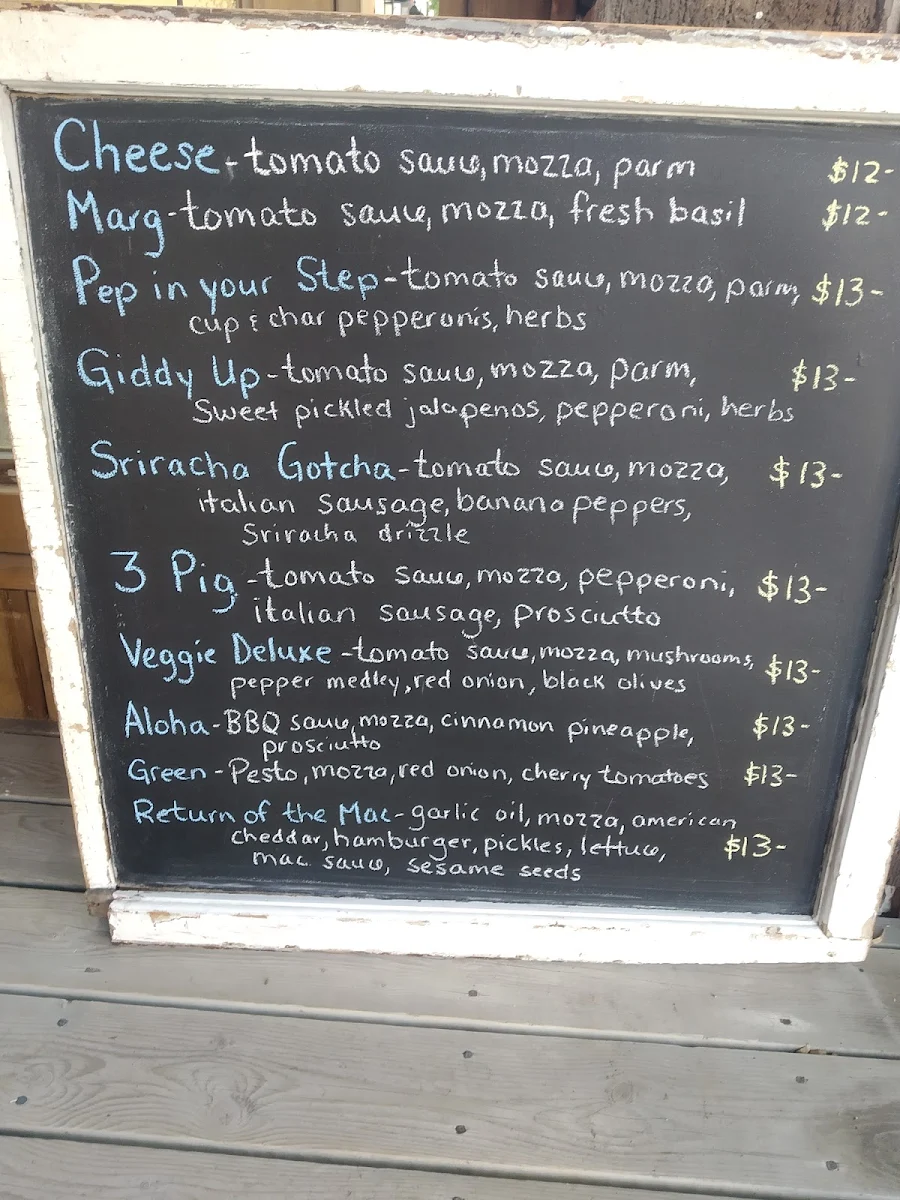 Cheese-tomato sauce, mozza, parm $12-
Marg-tomato sauce, mozza, fresh basil $12-
Pep in your Step-tomato sauce, mozza, parm, $13-
cup & char pepperonis, herbs
Giddy Up-tomato sauce, mozza, parm, $13-
Sweet pickled jalapenos, pepperoni, herbs
Sriracha Gotcha-tomato sauce, mozza, $13-
italian sausage, banana peppers,
Sriracha drizzle
3 Pig-tomato sauce, mozza, pepperoni, $13-
italian sausage, prosciutto
Veggie Deluxe-tomato sauce, mozza, mushrooms, $13-
pepper medley, red onion, black olives
Aloha-BBQ sauce, mozza, cinnamon pineapple, $13-
prosciutto
Green-Pesto, mozza, red onion, cherry tomatoes $13-
Return of the Mac-garlic oil, mozza, american
cheddar, hamburger, pickles, lettuce, $13-
mac sauce, sesame seeds